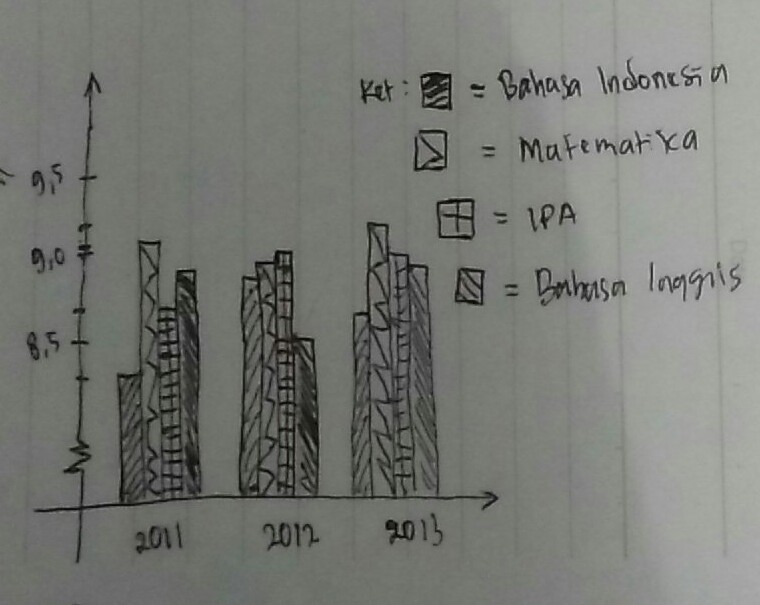 Ket: = Bahasa Indonesia
= Matematika
9,5
= IPA
9,0
= Bahasa Inggris
8,5
2011 2012 2013